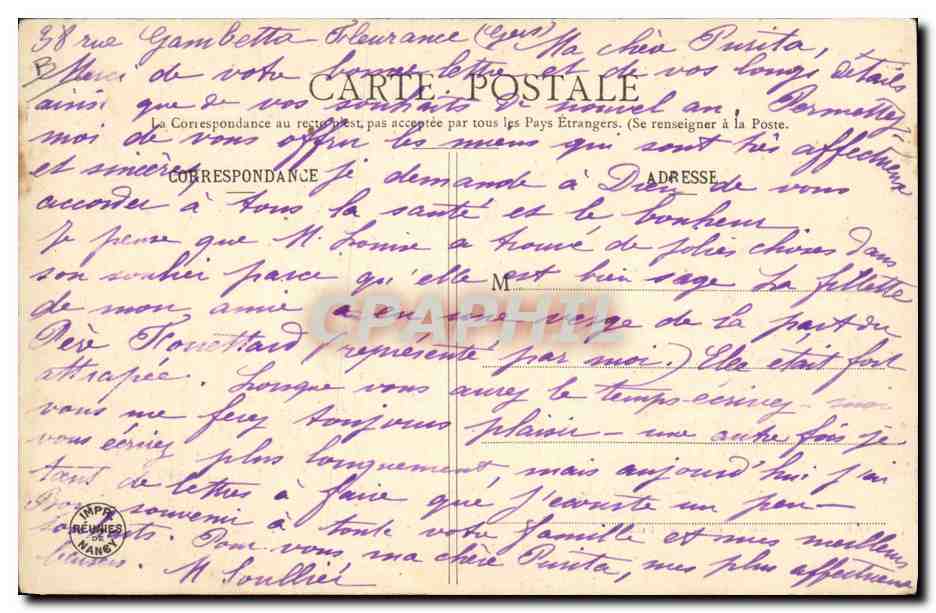 38 rue Gambetta Fleurance (Gers) Ma chère Purita,
Merci de votre bonne lettre et de vos longs détails
CARTE POSTALE
ainsi que de vos souhaits de nouvel an. Permettez
La Correspondance au recto n'est pas acceptée par tous les Pays Étrangers. (Se renseigner à la Poste.
moi de vous offrir les miens qui sont très affectueux
CORRESPONDANCE
ADRESSE
et sincères je demande à Dieu de vous
accorder à tous la santé et le bonheur
Je pense que M. Louise a trouvé de jolies choses dans
son soulier parce qu'elle est bien sage La fillette
M
de mon amie a eu une verge de la part du
CPAPHIL
Père Fouettard (représenté par moi.) Elle était fort
attrapée. Lorsque vous aurez le temps écrivez-moi
vous me ferez toujours plaisir - une autre fois je
vous écrirez plus longuement mais aujourd'hui j'ai
tant de lettres à faire que j'écourte un peu
Bon souvenir à toute votre famille et mes meilleurs
souhaits. Pour vous ma chère Purita, mes plus affectueux
baisers. M Soullié
IMPRIES RÉUNIES DE NANCY